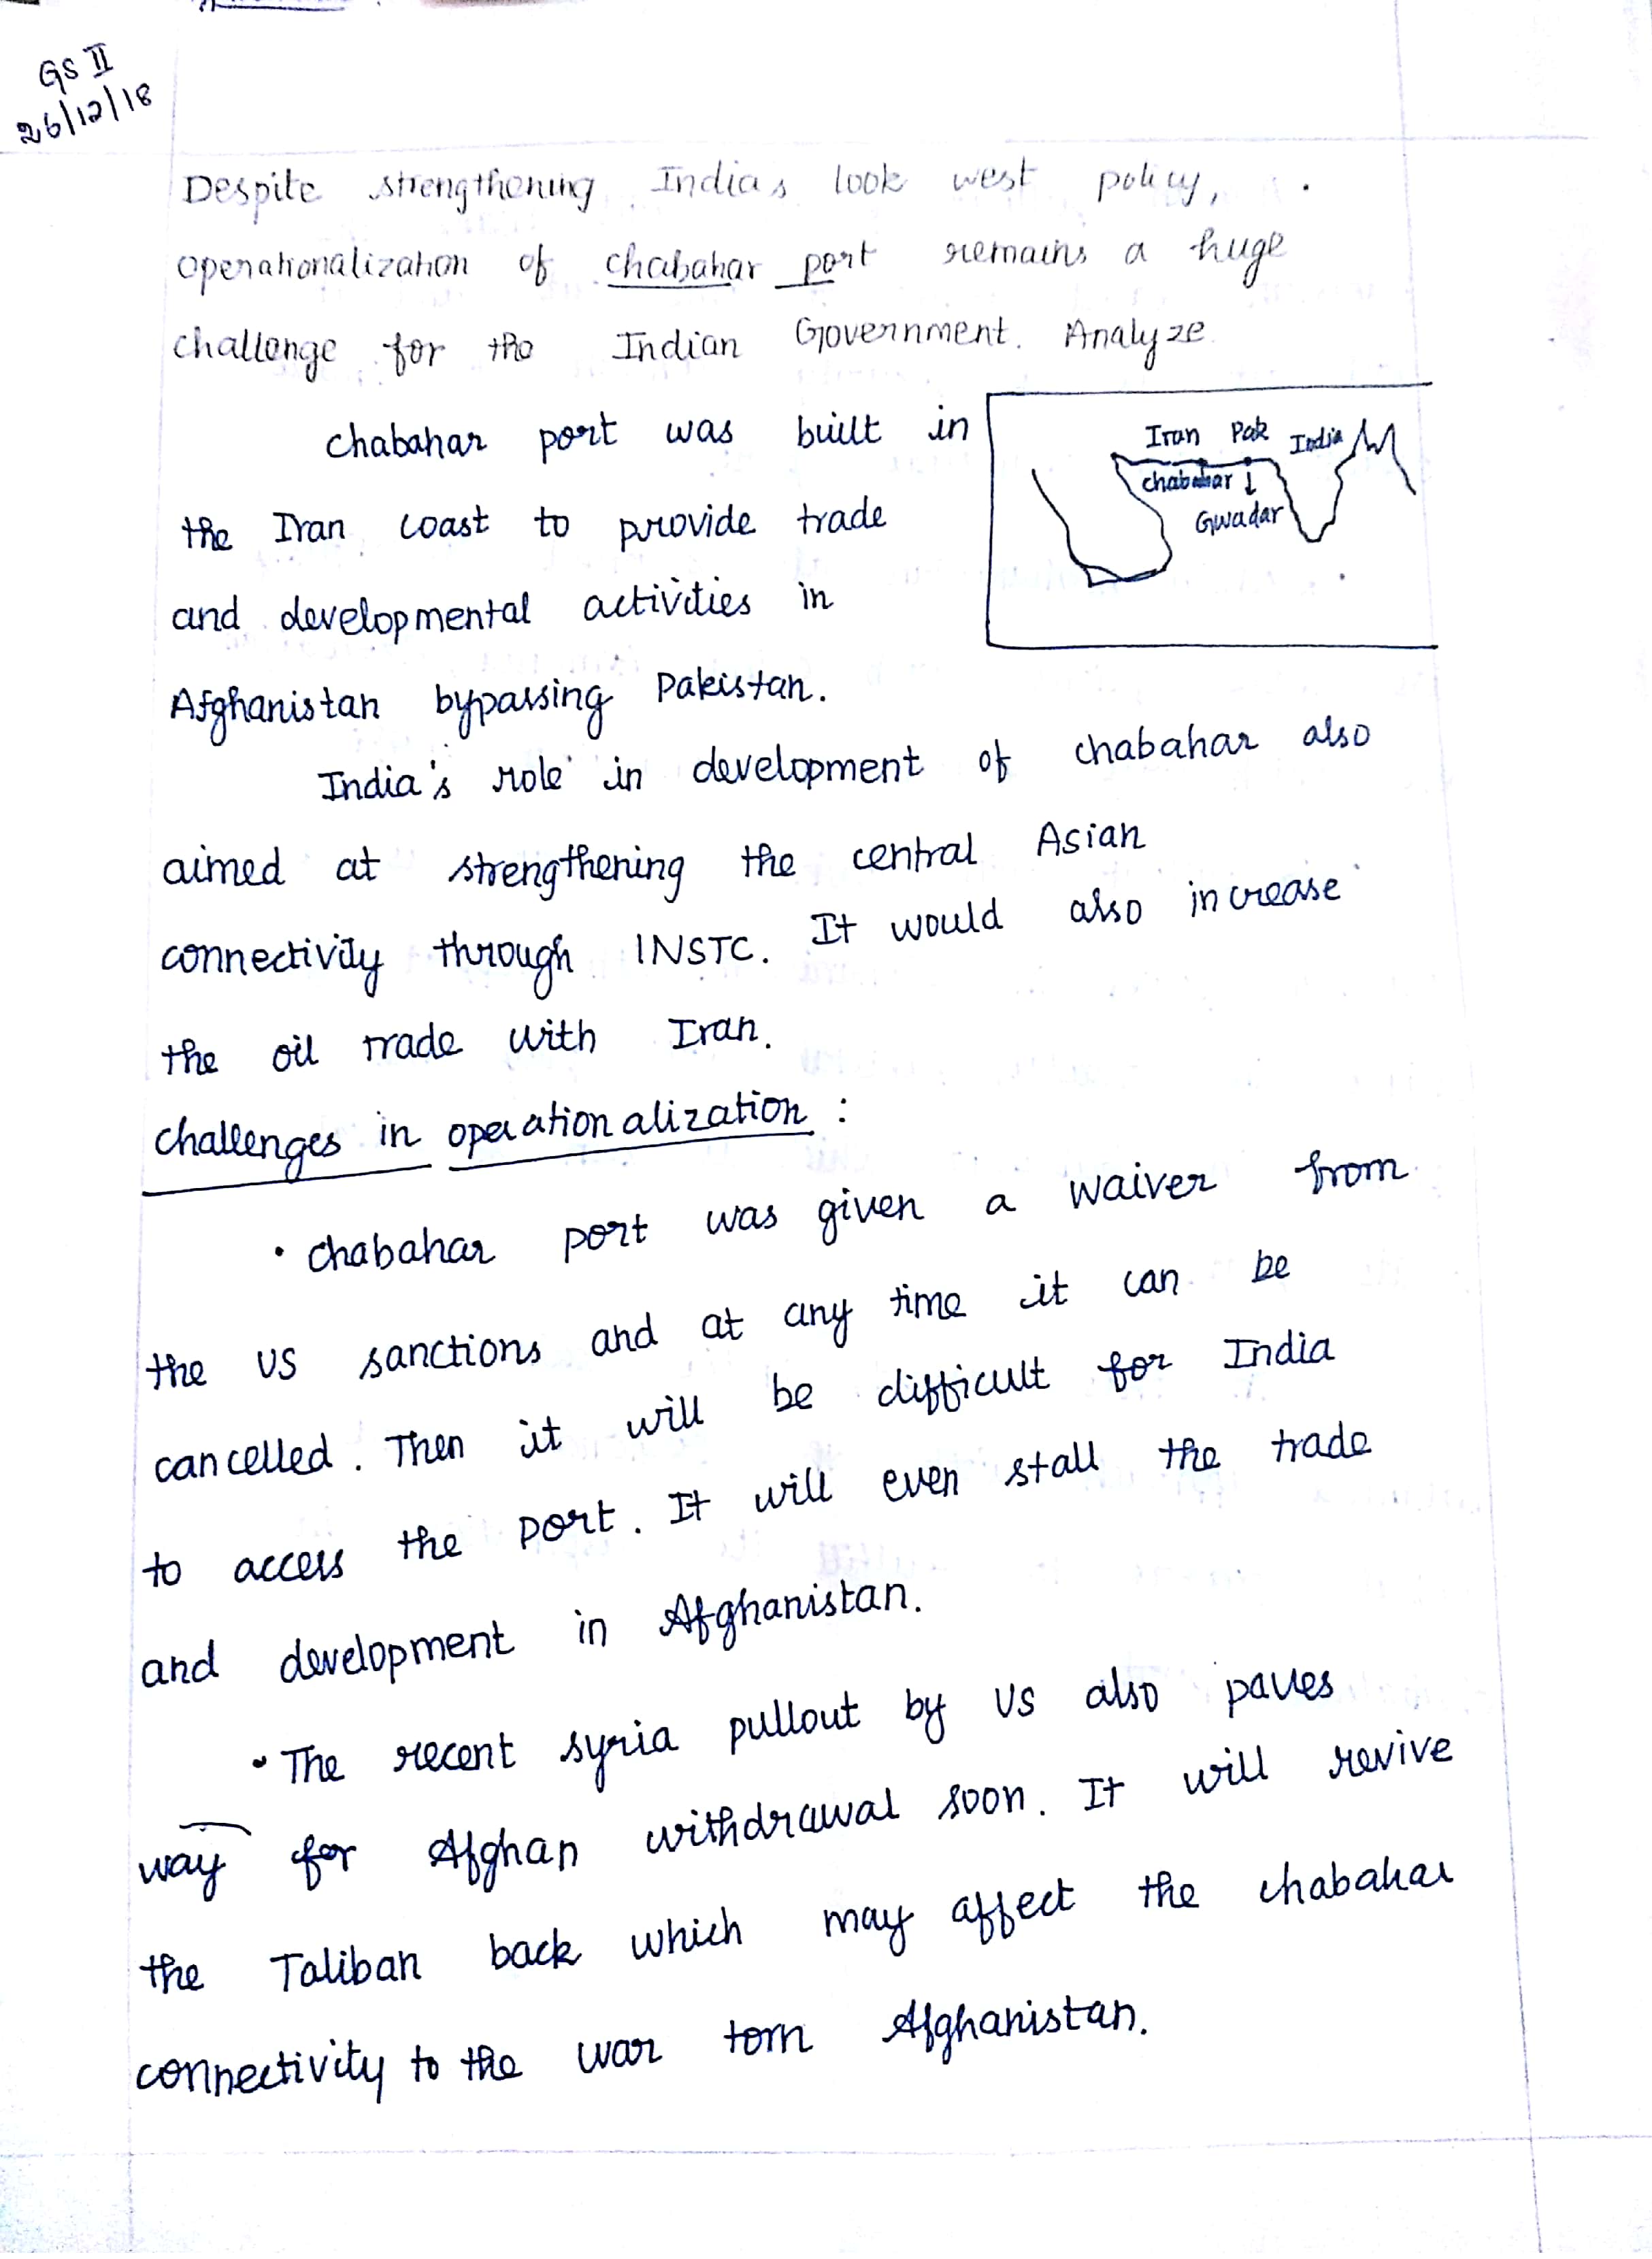 GS II
26/12/18
Despite strengthening India's look west policy,
operationalization of chabahar port remains a huge
challenge for the Indian Government. Analyze
chabahar port was built in
the Iran coast to provide trade
and developmental activities in
Afghanistan bypassing Pakistan.
Iran Pak India
chabahar ↓
Gwadar
India's role in development of chabahar also
aimed at strengthening the central Asian
connectivity through INSTC. It would also increase
the oil trade with Iran.
challenges in operationalization :
• chabahar port was given a waiver from
the US sanctions and at any time it can be
cancelled. Then it will be difficult for India
to access the port. It will even stall the trade
and development in Afghanistan.
• The recent syria pullout by US also paves
way for Afghan withdrawal soon. It will revive
the Taliban back which may affect the chabahar
connectivity to the war torn Afghanistan.